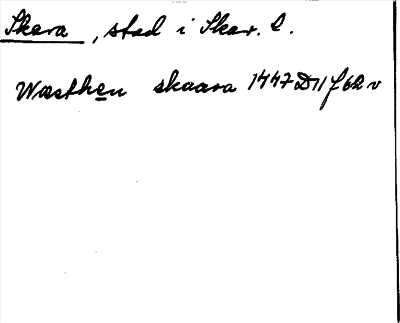 Skara, stad i Skar. l.
Wæsthen skaara 1447 D 11 f 62 v